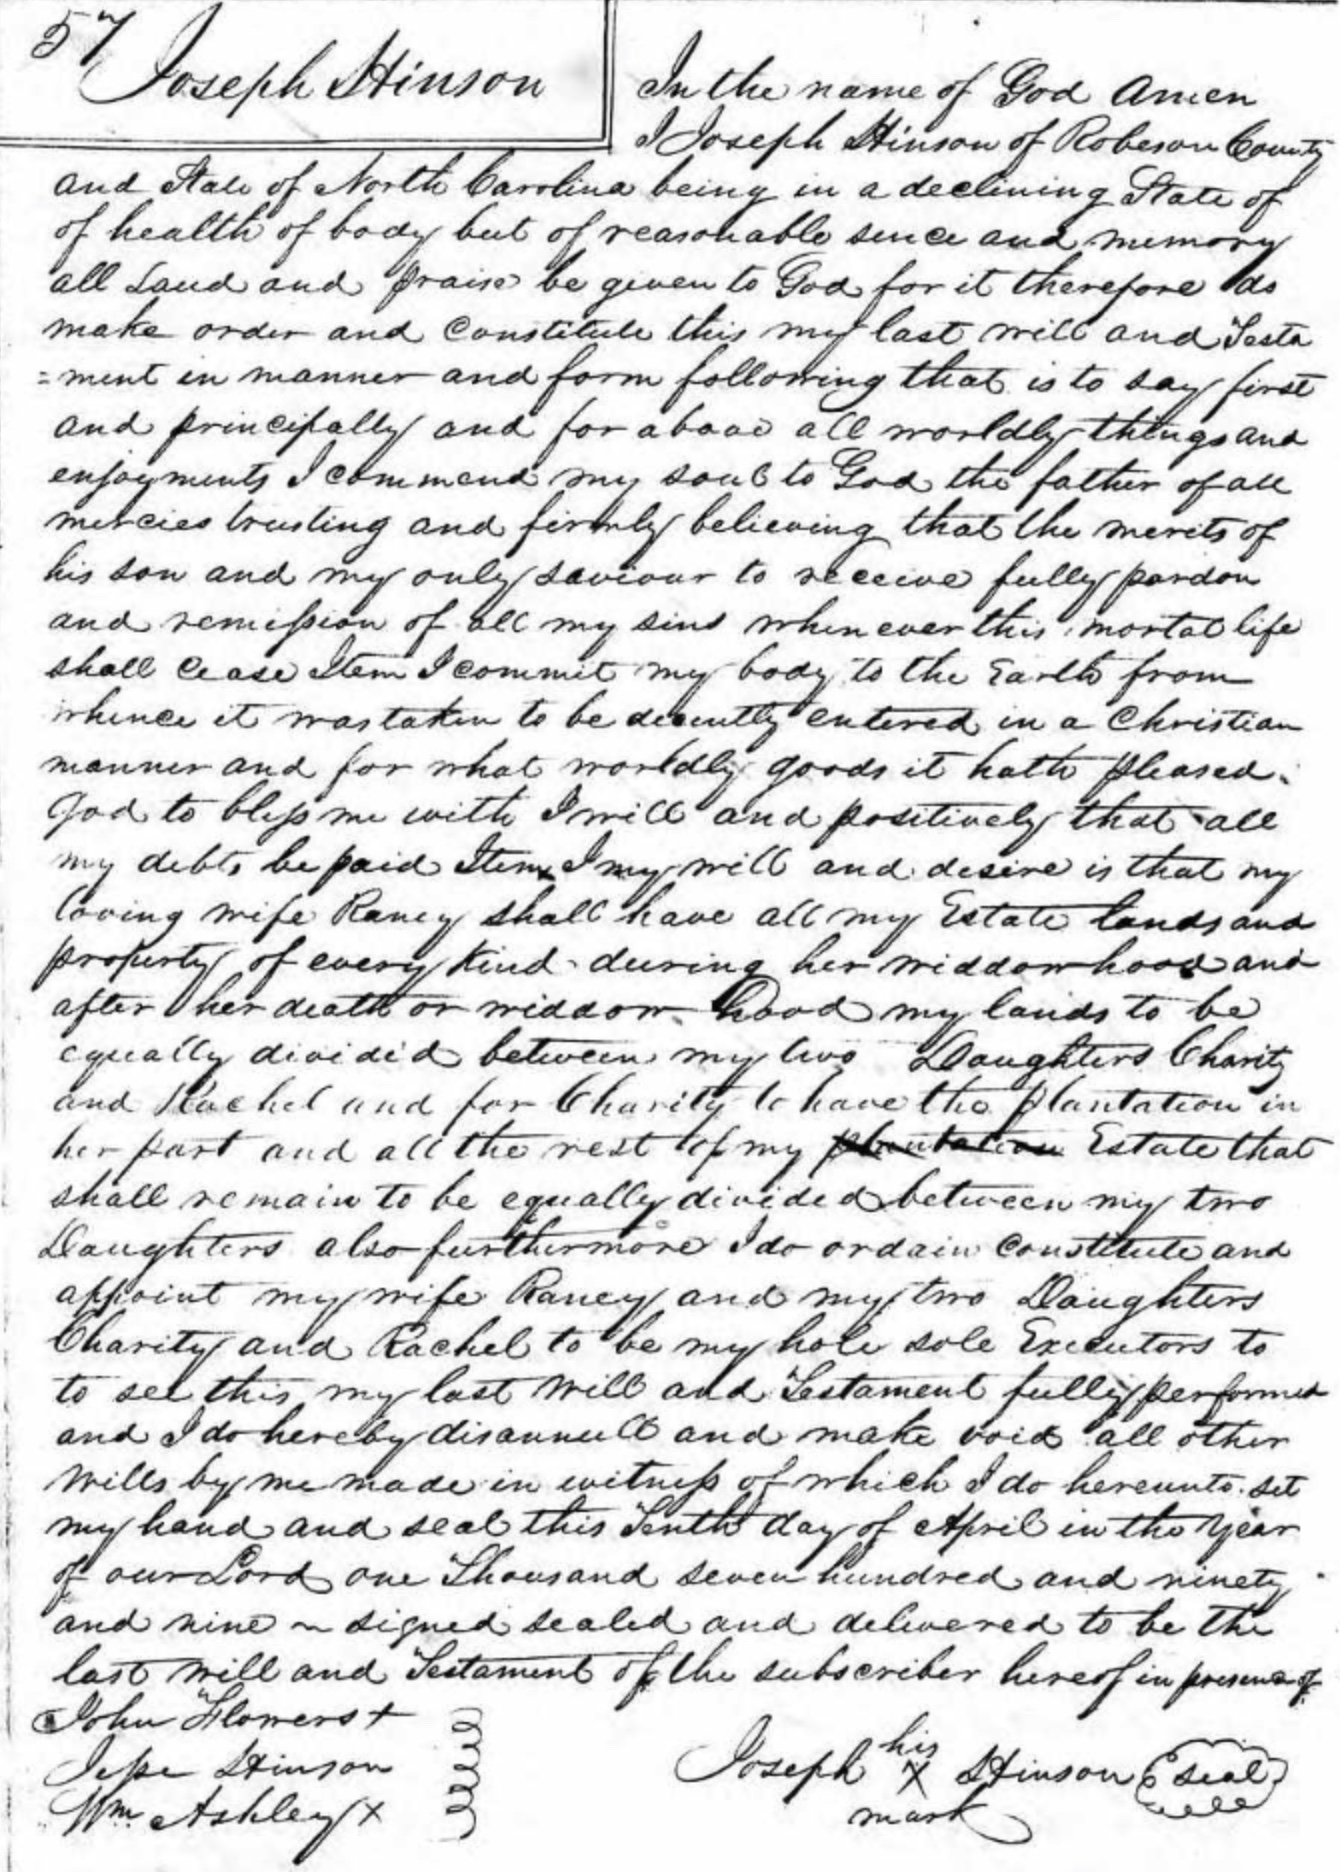 57
Joseph Stinson
In the name of God Amen
I Joseph Stinson of Robeson County
and State of North Carolina being in a declining State of
of health of body but of reasonable sence and memory
all Laud and praise be given to God for it therefore do
make order and constitute this my last will and Testa
=ment in manner and form following that is to say first
and principally and for above all worldly things and
enjoyments I commend my soul to God the father of all
mercies trusting and firmly believing that the merits of
his son and my only saviour to receive fully pardon
and remission of all my sins when ever this mortal life
shall cease Item I commit my body to the Earth from
whence it was taken to be decently entered in a Christian
manner and for what worldly goods it hath pleased
God to bless me with I will and positively that all
my debts be paid Item I my will and desire is that my
loving wife Raney shall have all my Estate lands and
property of every kind deuring her widdowhood and
after her death or widdow hood my lands to be
equally divided between my two Daughters Charity
and Rachel and for Charity to have the plantation in
her part and all the rest of my plantation Estate that
shall remain to be equally divided between my two
Daughters also furthermore I do ordain constitute and
appoint my wife Raney and my two Daughters
Charity and Rachel to be my hole sole Executors to
to see this my last Will and Testament fully performed
and I do hereby disannull and make void all other
Wills by me made in witness of which I do hereunto set
my hand and seal this Tenth day of April in the Year
of our Lord one Thousand seven hundred and ninety
and nine ~ signed sealed and delivered to be the
last will and Testament of the subscriber hereof in presence of
John Flowers +
Jesse Stinson
Wm Ashley x
Joseph his X mark Stinson seal